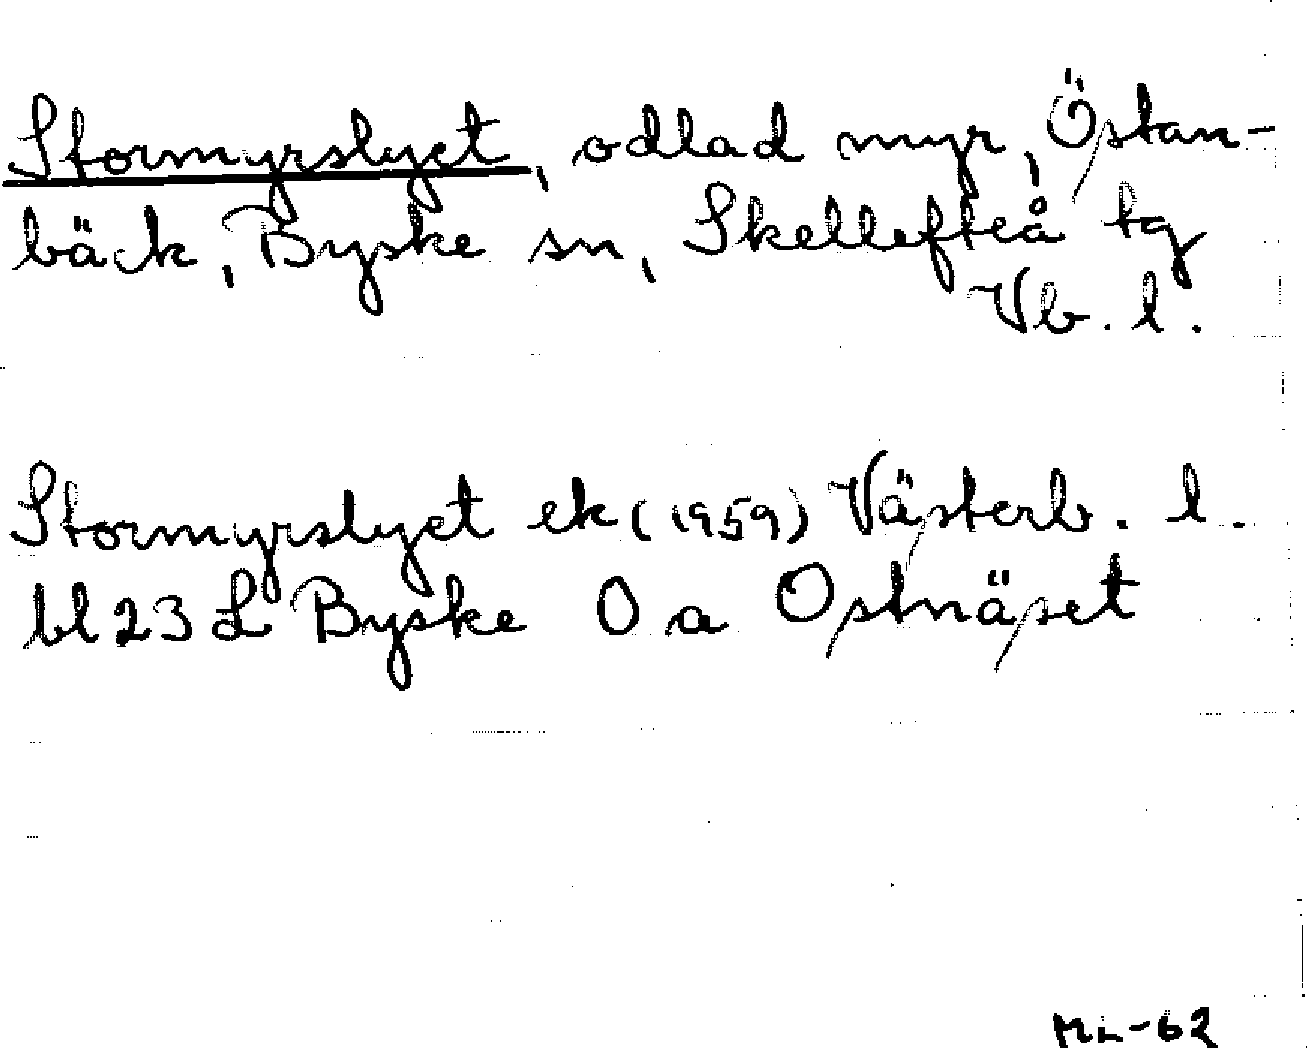 Stormyrslyet, odlad myr, Östan-
bäck, Byske sn, Skellefteå tg
Vb. l.
Stormyrslyet ek (1959) Västerb. l.
bl 23 L Byske 0 a Ostnäset
ML-62